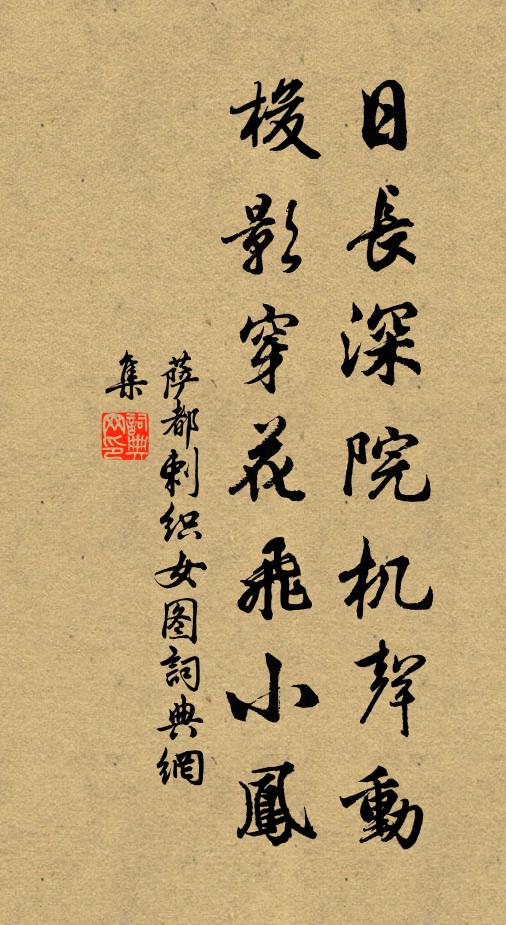 日長深院机聲動
梭影穿花飛小鳳
萨都剌织女图詞典網
集
詞典网印